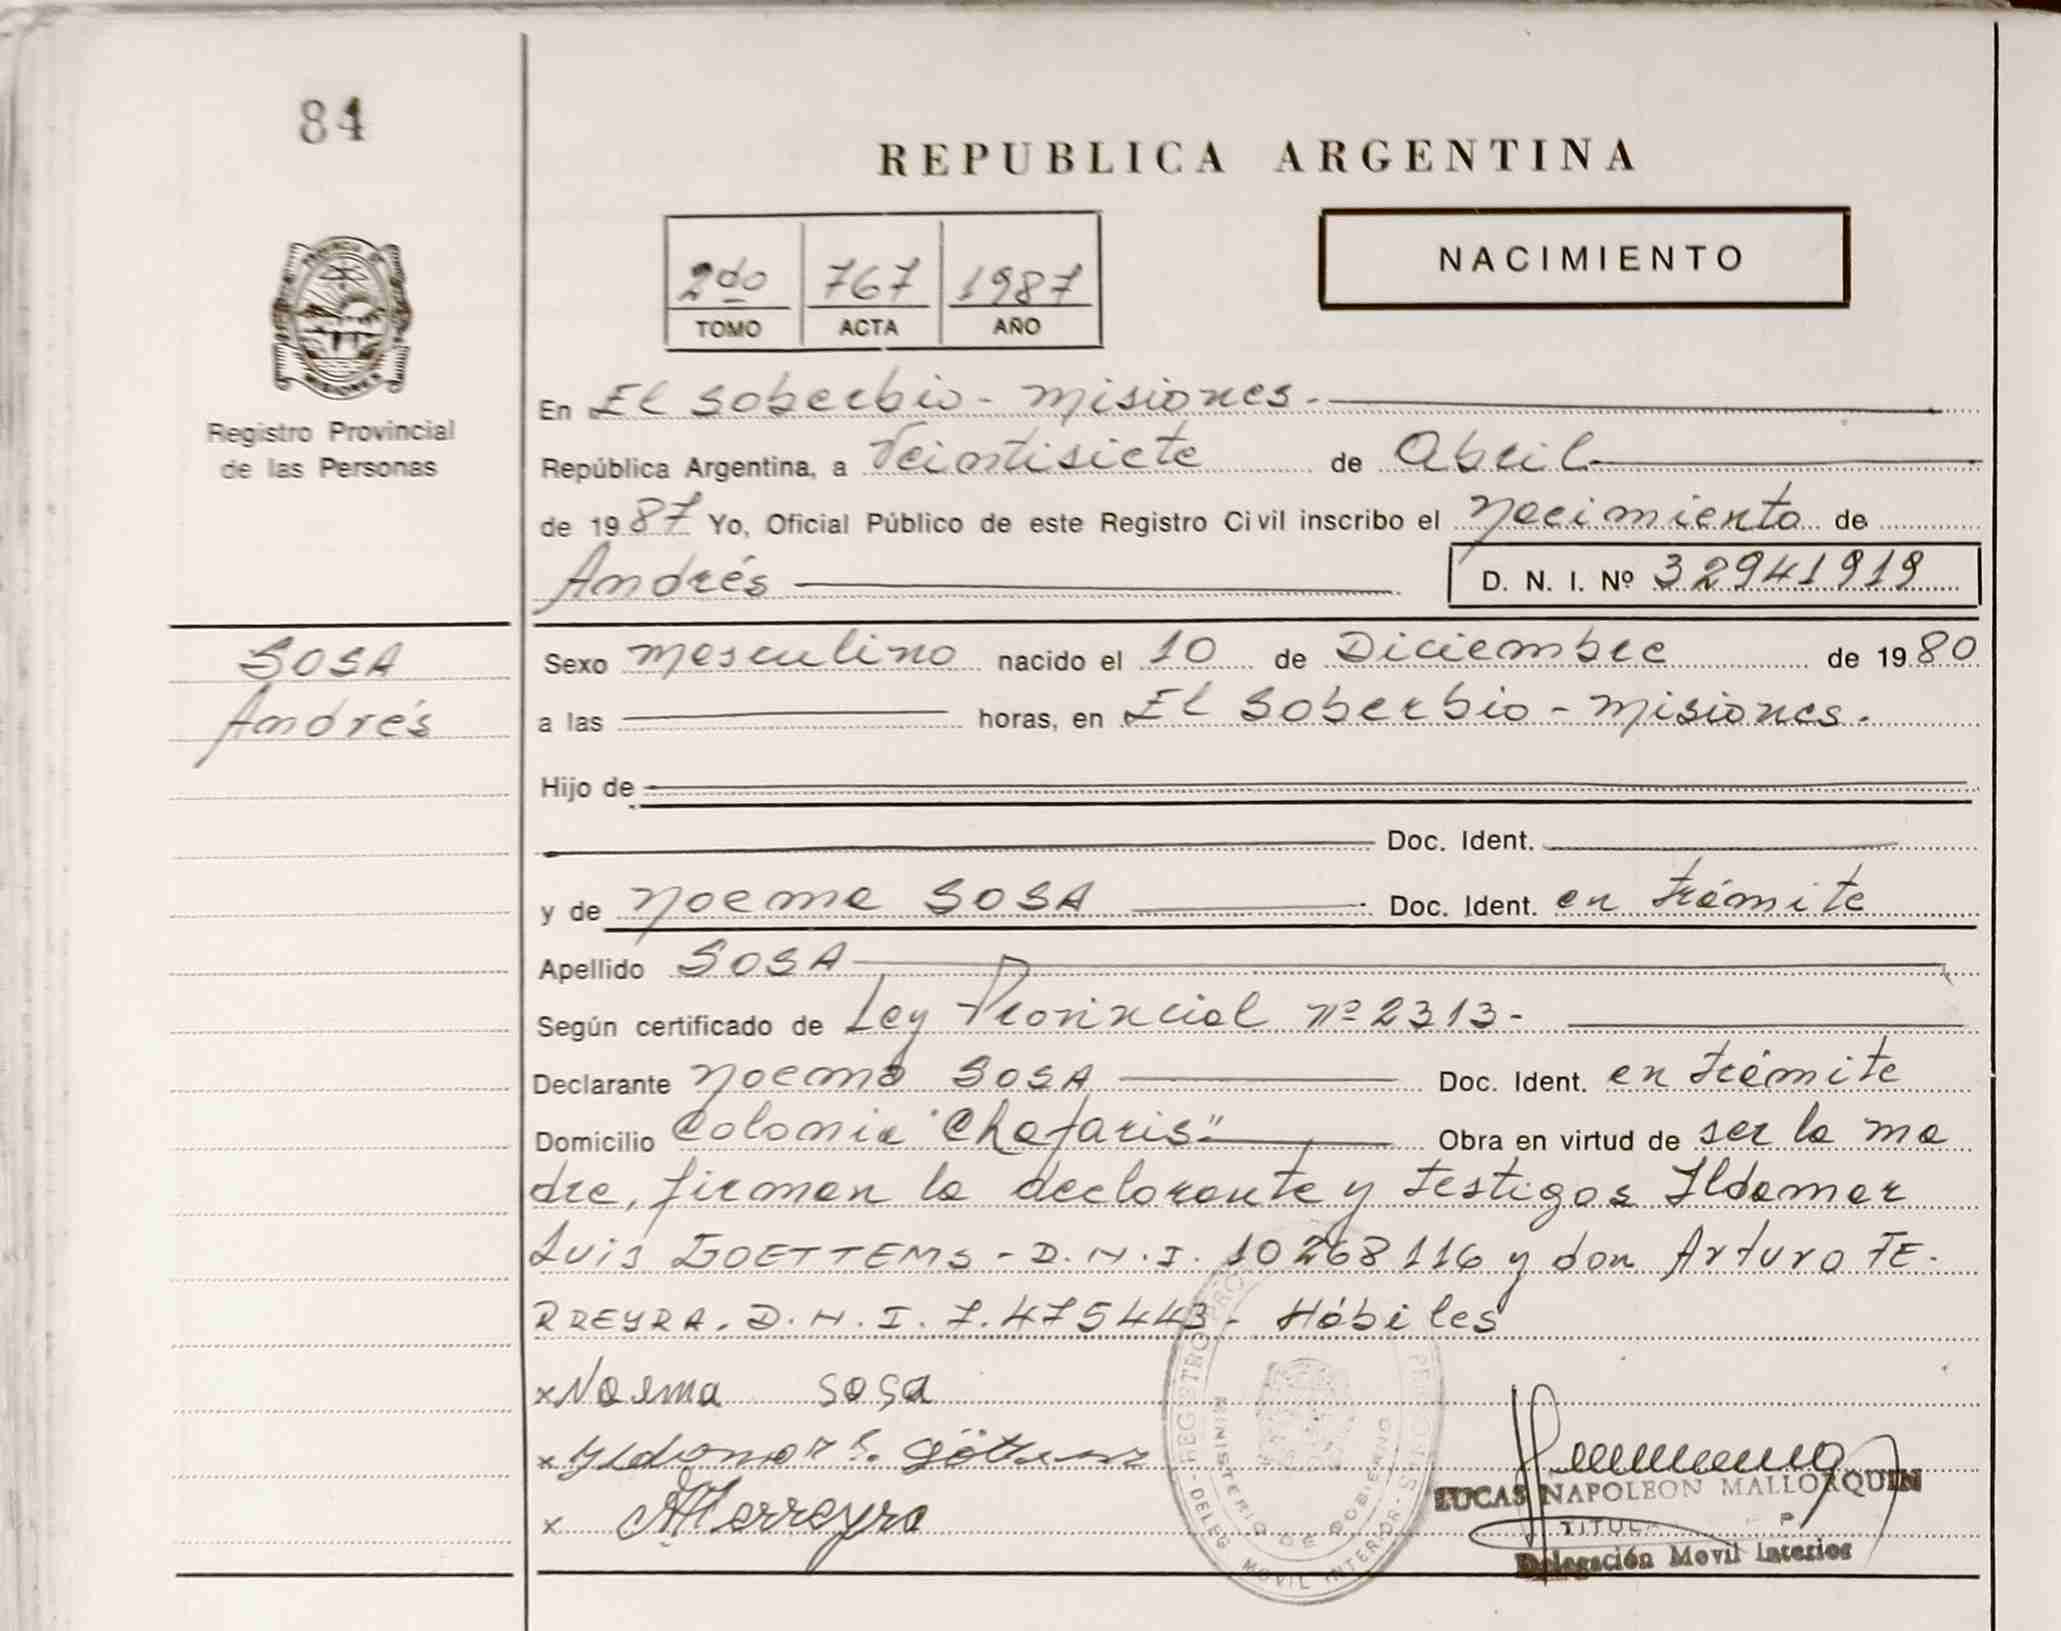 84
REPUBLICA ARGENTINA
2do 767 1987
TOMO ACTA AÑO
NACIMIENTO
Registro Provincial
de las Personas
En El Soberbio - Misiones.-
República Argentina, a Veintisiete de Abril
de 1987 Yo, Oficial Público de este Registro Civil inscribo el Nacimiento de
Andrés D. N. I. Nº 32941919
SOSA
Andrés
Sexo Masculino nacido el 10 de Diciembre de 1980
a las horas, en El Soberbio - Misiones.
Hijo de
Doc. Ident.
y de Noema SOSA Doc. Ident. en trámite
Apellido SOSA
Según certificado de Ley Provincial nº 2313-
Declarante Noema SOSA Doc. Ident. en trámite
Domicilio Colonia "Chafaris" Obra en virtud de ser la ma
dre, firman la declarante y testigos Ildamar
Luis GOETTEMS - D.N.I. 10268116 y don Arturo FE-
RREYRA. D.N.I. 7.475443- Hábiles
x Noema sosa
x Yldomar
x AFerreyra
REGISTRO PRO PERSONAS
MINISTERIO DE GOBIERNO
DELEG. MOVIL INTERIOR
LUCAS NAPOLEON MALLORQUIN
TITULAR
Delegación Movil Interior